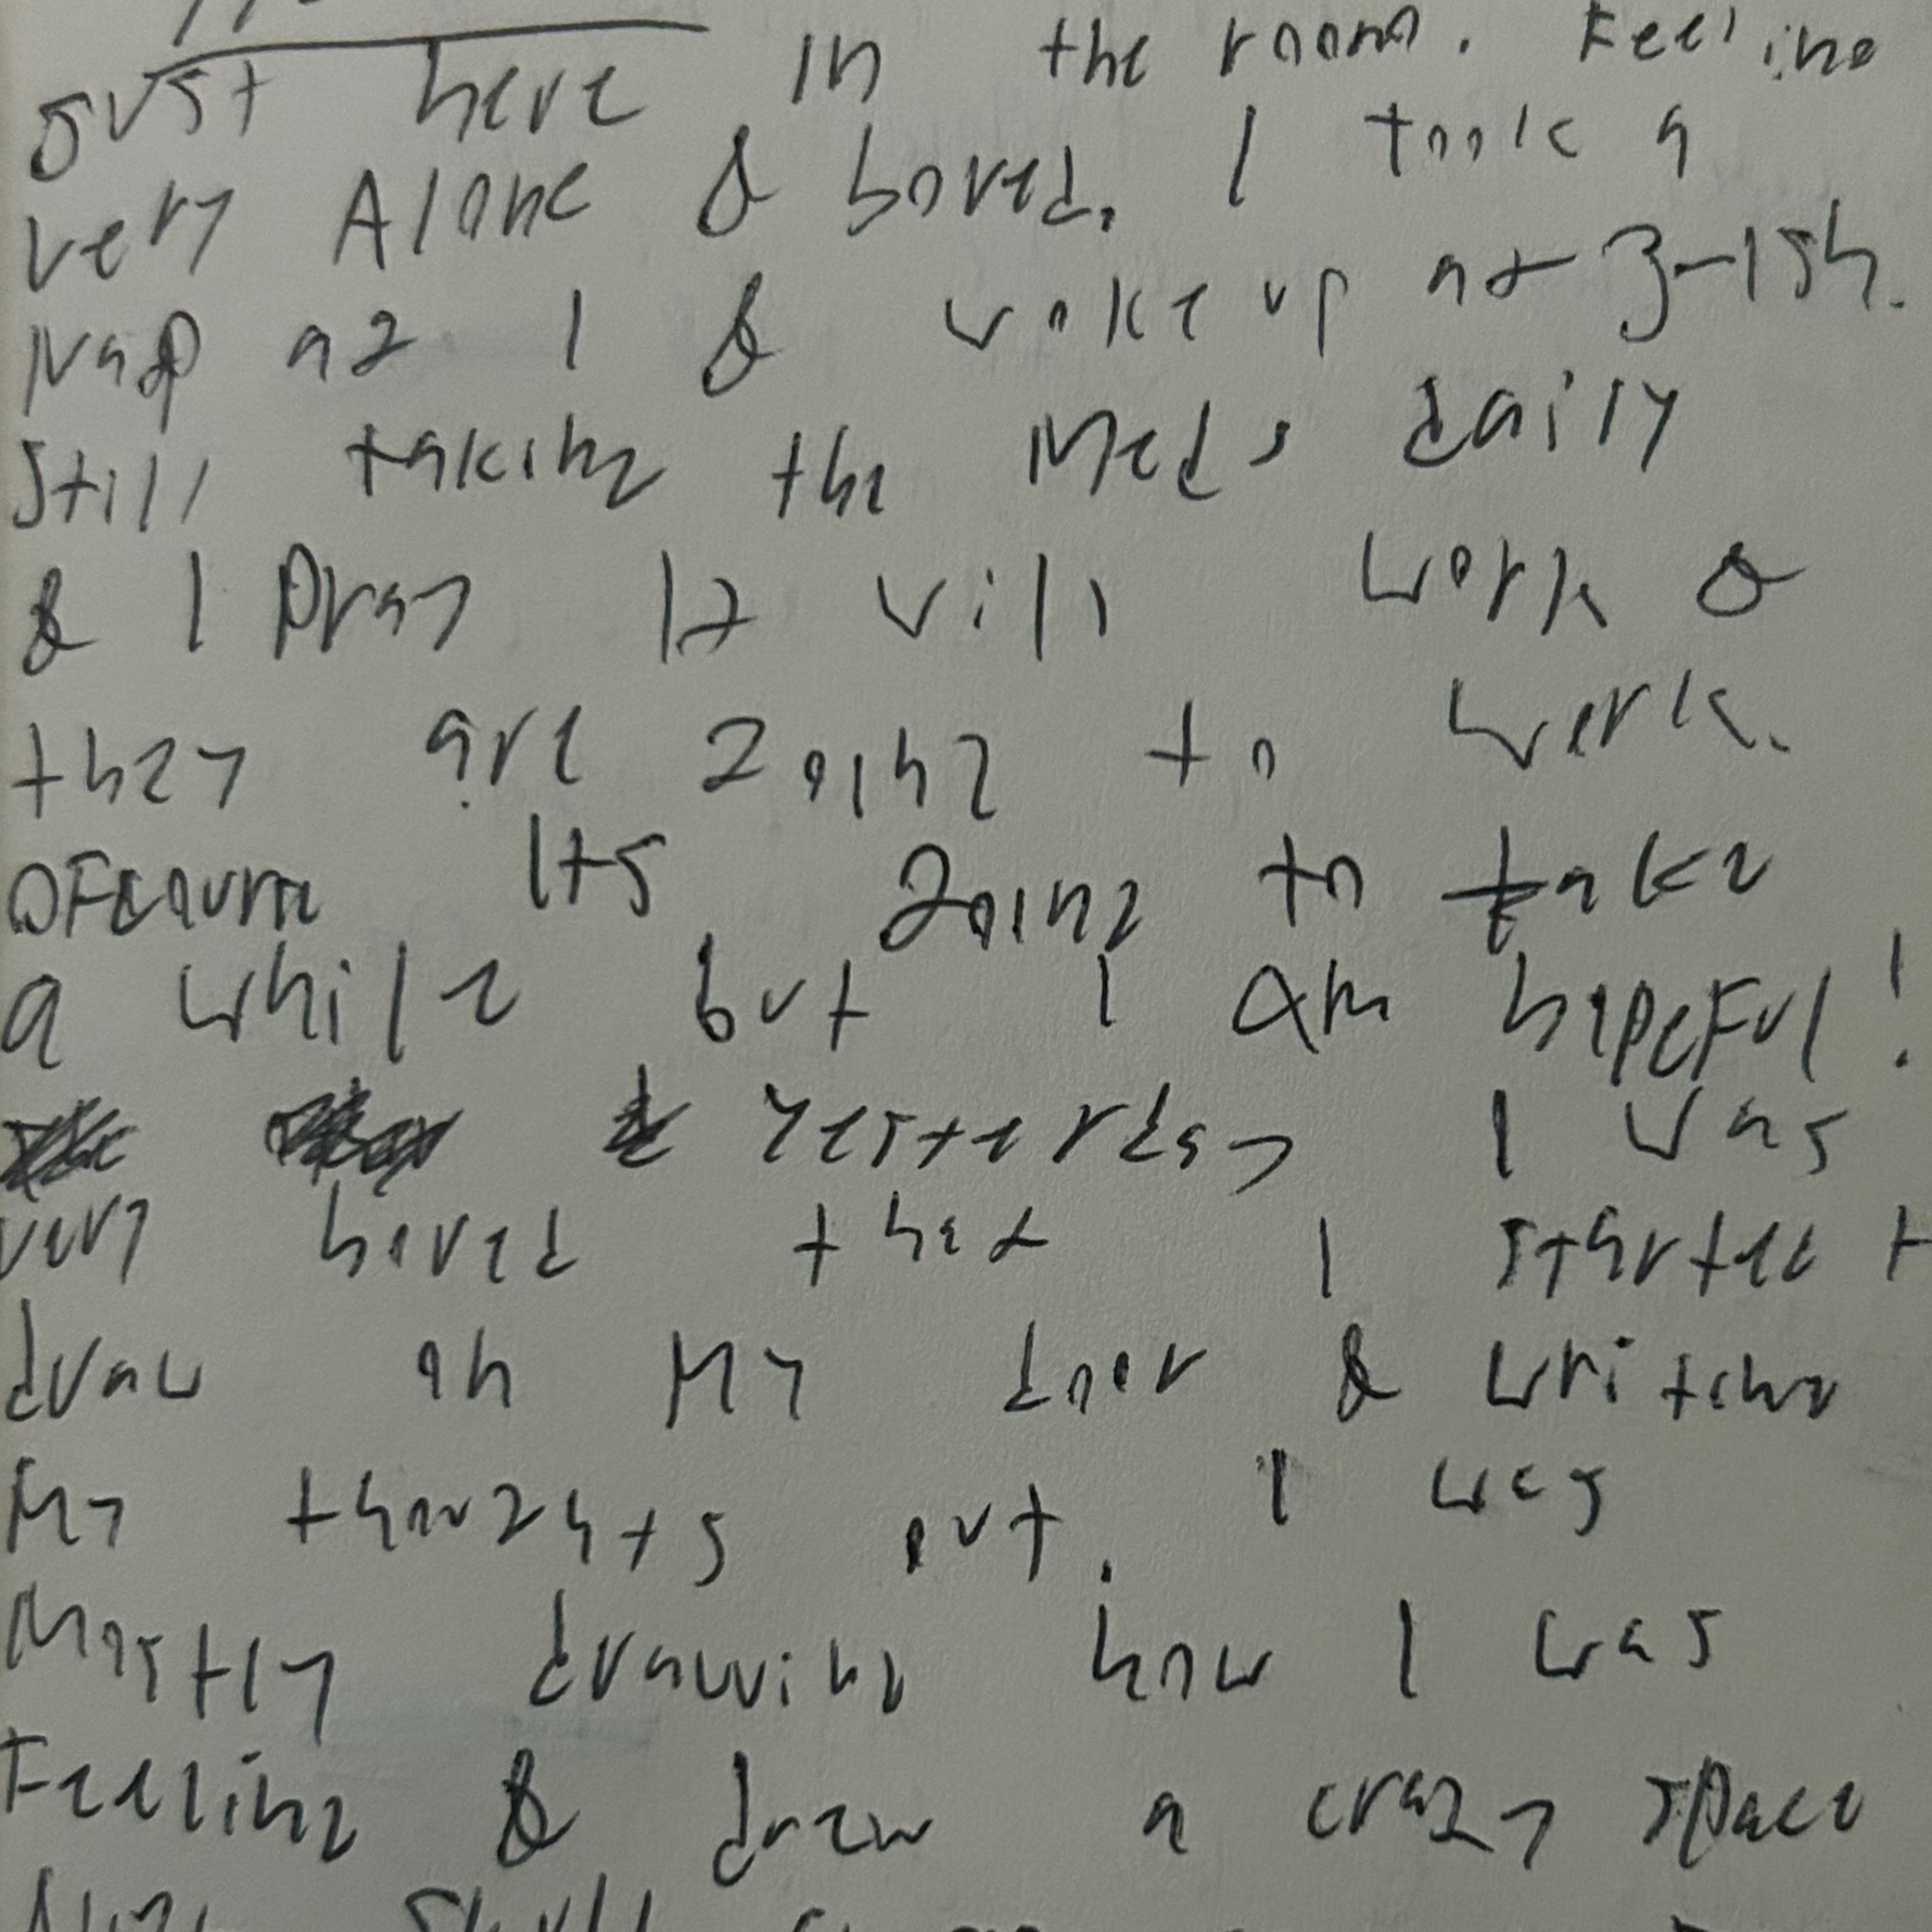 Just here in the room. Feeling
very Alone & bored. I took a
Nap at 1 & woke up at 3-ish.
Still taking the Meds daily
& I Pray It will work &
they are going to work.
OFcourse Its going to take
a while but I am hopeFul!
Yesterday I was
very bored that I started t
draw on My door & writing
My thoughts out. I was
Mostly drawing how I was
Feeling & drew a crazy space
Skull